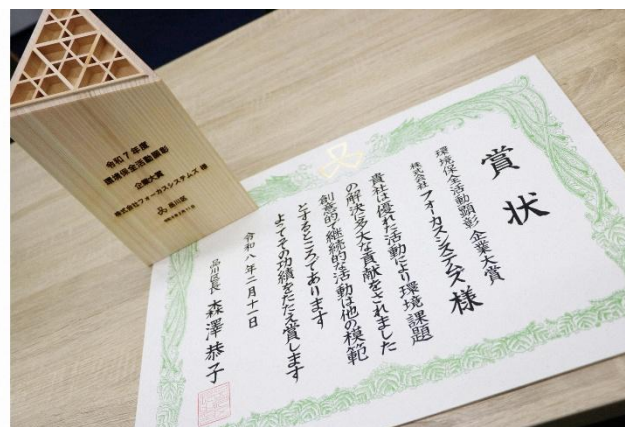 令和7年度
環境保全活動顕彰
企業大賞
株式会社フォーカスシステムズ 様
品川区
賞状
環境保全活動顕彰企業大賞
株式会社 フォーカスシステムズ 様
貴社は優れた活動により環境課題
の解決に多大な貢献をされました
創意的で継続的な活動は他の模範
とするところであります
よってその功績をたたえ賞します
令和八年二月十一日
品川区長 森澤恭子